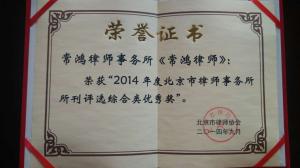 荣誉证书
常鸿律师事务所《常鸿律师》:
荣获“2014年度北京市律师事务所
所刊评选综合类优秀奖”。
北京市律师协会
二〇一四年九月